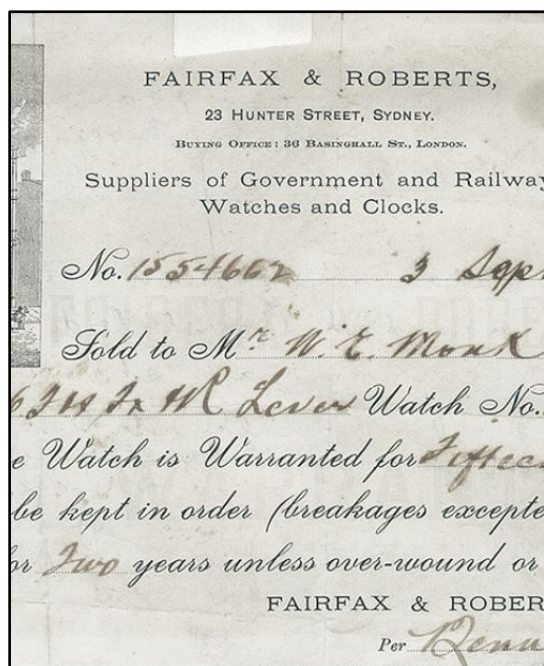 FAIRFAX & ROBERTS,
23 HUNTER STREET, SYDNEY.
BUYING OFFICE: 36 BASINGHALL ST., LONDON.
Suppliers of Government and Railway
Watches and Clocks.
No. 1554662 3 Sep
Sold to Mr W. E. Monk
Lever Watch No.
e Watch is Warranted for Fiftee
be kept in order (breakages excepte
or Two years unless over-wound or
FAIRFAX & ROBER
Per